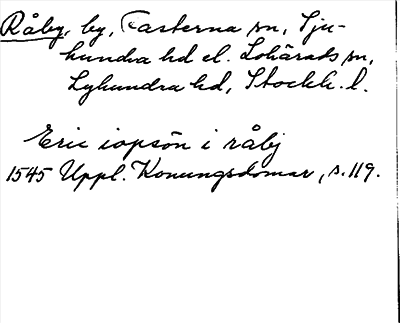 Råby, by, Fasterna sn, Sju-
hundra hd el. Lohärads sn,
Lyhundra hd, Stockh. l.
Eric iopsön i råbj
1545 Uppl. Konungsdomar, s. 119.